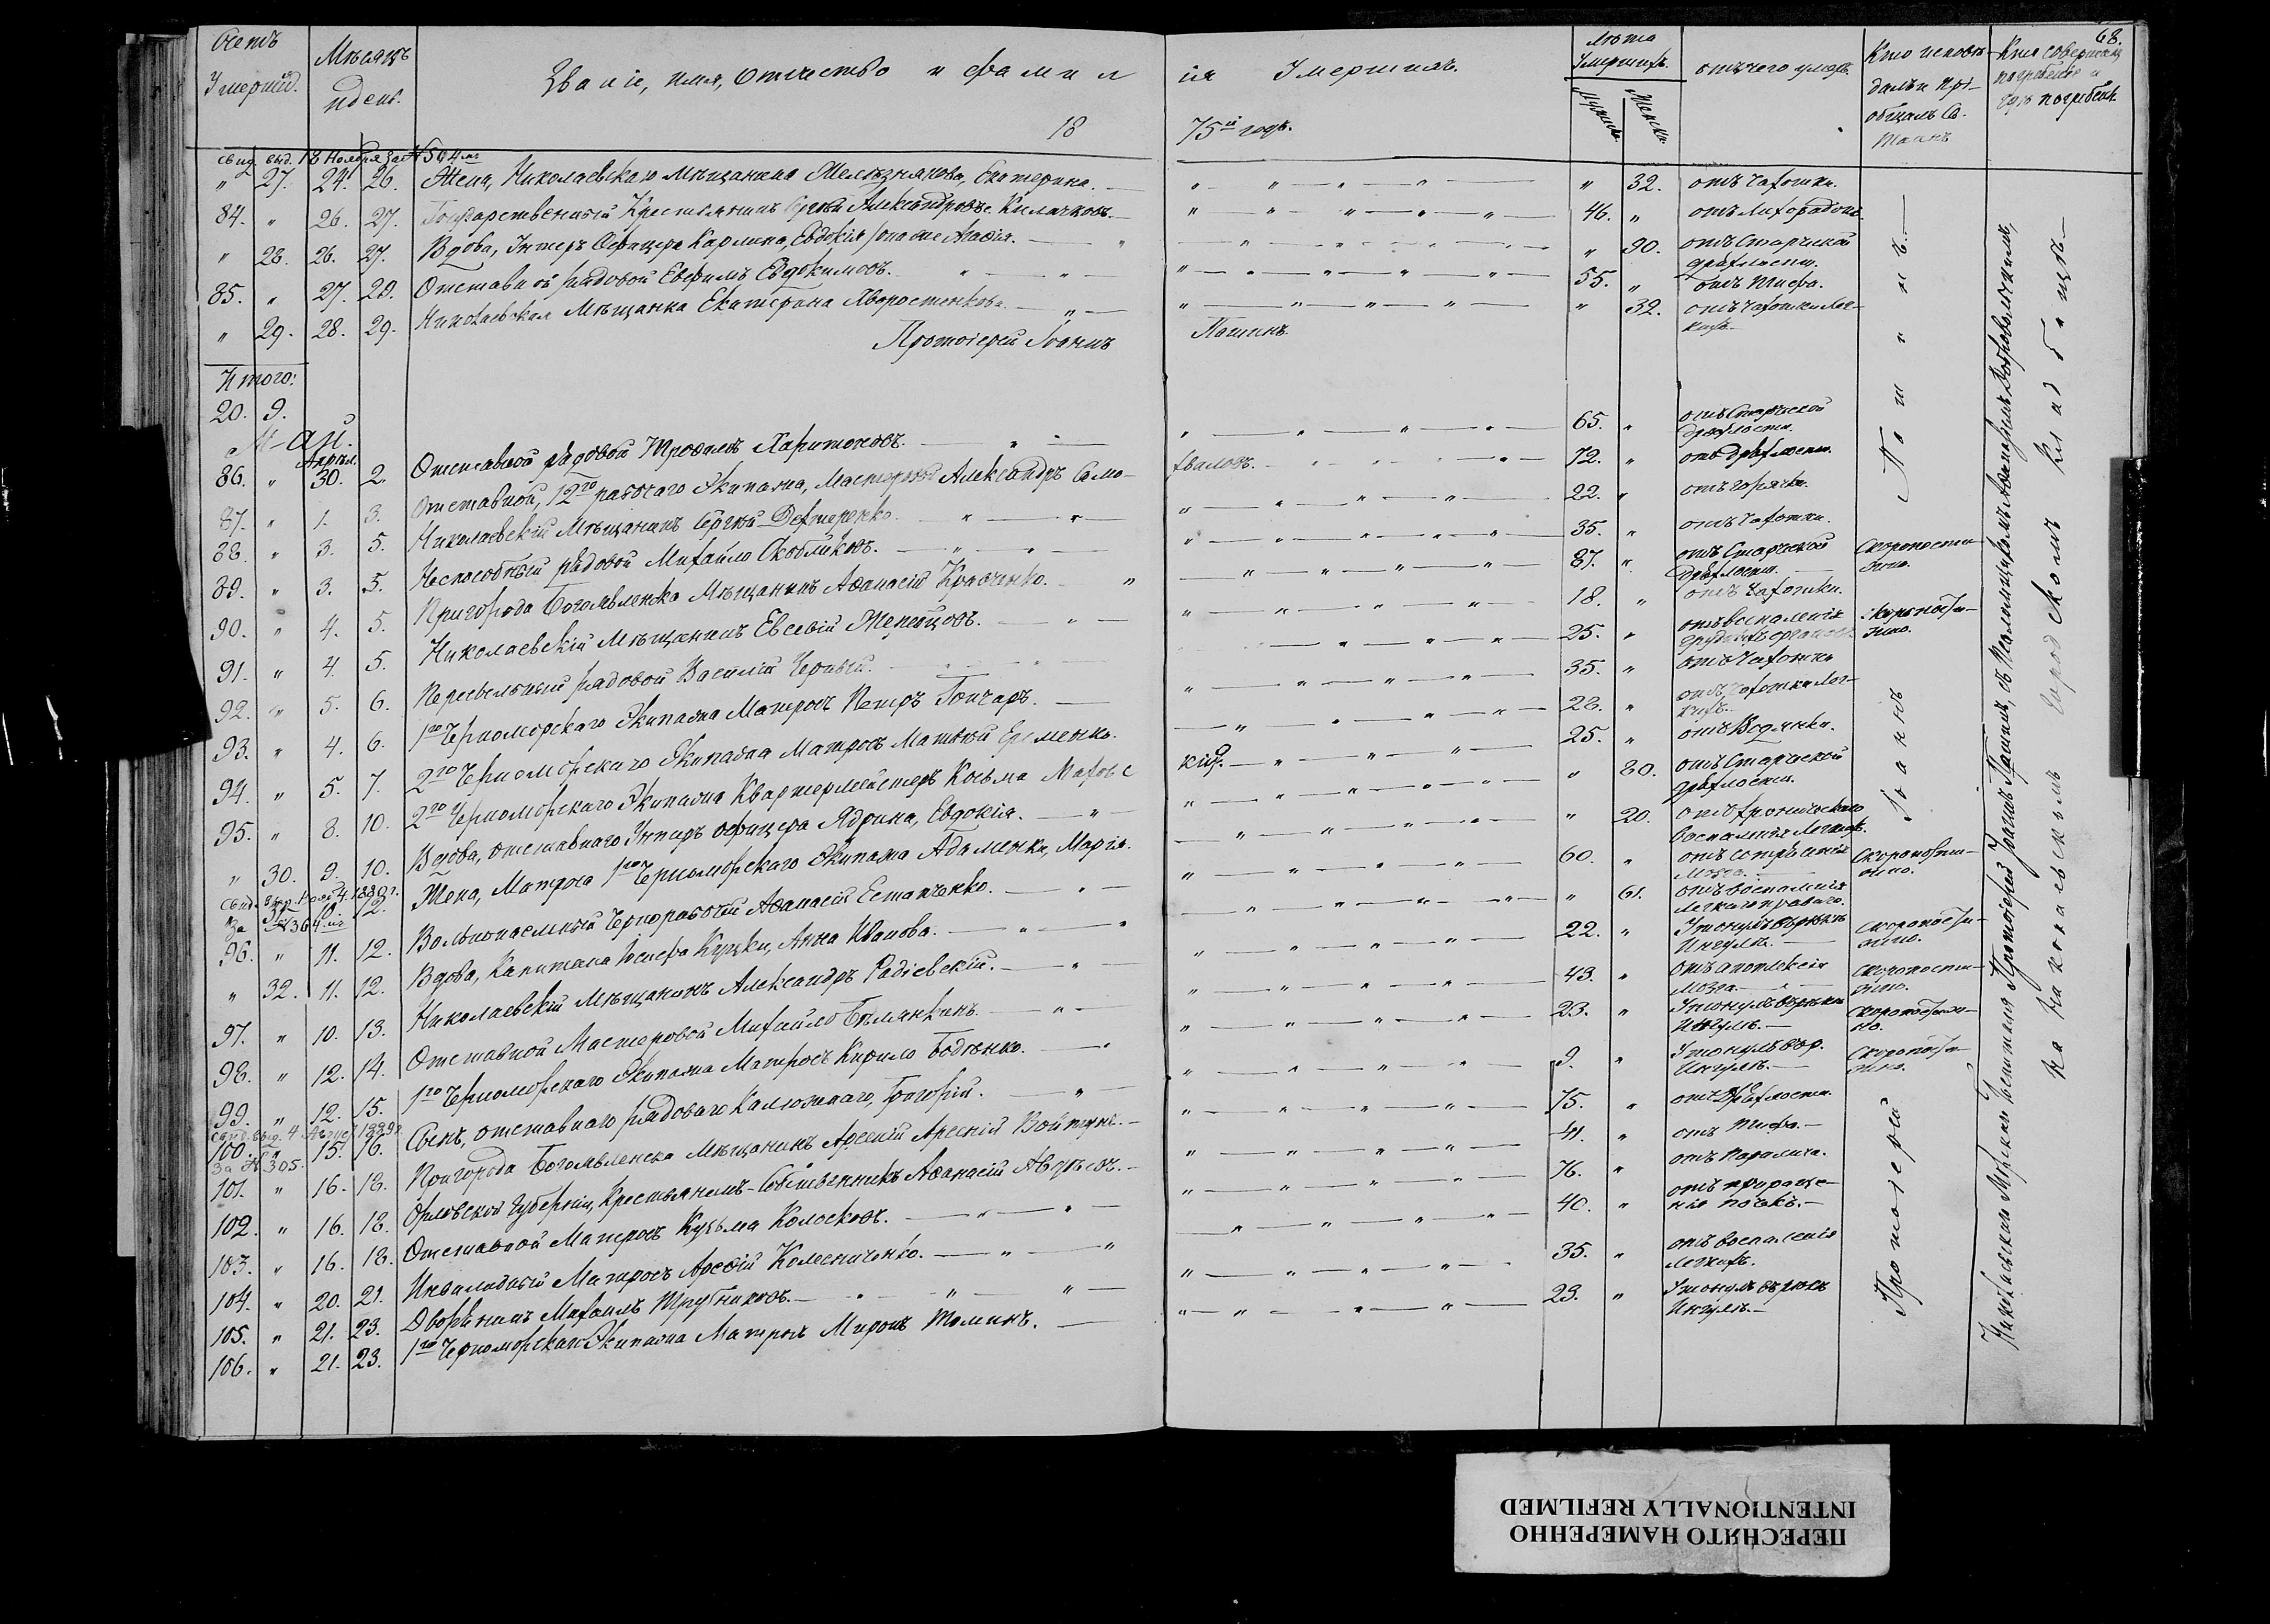 Счетъ Умершихъ.
Мѣсяцъ и день.
Званіе, имя, отчество и фамилія Умершихъ.
1875й годъ.
Лѣта Умершихъ.
Мужска.
Женска.
отъ чего умеръ.
Кто исповѣдалъ и пріобщалъ Св. Таинъ
Кто совершалъ погребеніе и гдѣ погребенъ.
68.
Свид. выд. 18 Ноября за № 504мъ
" 27. 24. 26. Жена, Николаевскаго Мѣщанина Желѣзнякова, Екатерина. " 32. отъ чахотки.
84. " 26. 27. Государственный Крестьянинъ Александровъ 46. " отъ лихорадки
" 28. 26. 27. Вдова, Унтеръ Офицера Карлина, Евдокія она же Агафія. " 90. отъ Старческой дряхлости.
85. " 27. 29. Отставной рядовой Евфимъ Евдокимовъ. 55. " отъ тифа.
" 29. 28. 29. Николаевская Мѣщанка Екатерина Хворостенкова. " 32. отъ чахотки легкихъ.
Протоіерей Іоаннъ Пашинъ.
Итого:
20. 9.
Май.
Апрѣл.
86. " 30. 2. Отставной рядовой Трофимъ Харитоновъ. 65. " отъ Старческой дряхлости.
87. " 1. 3. Отставной, 12го рабочаго Экипажа, Мастеровой Александръ Самохваловъ. 72. " отъ дряхлости.
88. " 3. 5. Николаевскій Мѣщанинъ Сергѣй Дехтеренко. 22. " отъ горячки.
89. " 3. 5. Неспособный рядовой Михайло Скобликовъ. 35. " отъ чахотки.
90. " 4. 5. Пригорода Богоявленска Мѣщанинъ Аѳанасій Кравченко. 87. " отъ Старческой дряхлости. Скоропостижно.
91. " 4. 5. Николаевскій Мѣщанинъ Евсевій Жерейцовъ. 18. " отъ чахотки.
92. " 5. 6. рядовой Василій Черный. 25. " отъ воспаленія грудныхъ органовъ Скоропостижно.
93. " 4. 6. 1го Черноморскаго Экипажа Матросъ Петръ Гончаръ. 35. " отъ чахотки
94. " 5. 7. 2го Черноморскаго Экипажа Матросъ Матвѣй Еременко. 28. " отъ чахотки легкихъ.
95. " 8. 10. 2го Черноморскаго Экипажа Квартермейстеръ Козьма 25. " отъ Водянки.
" 30. 9. 10. Вдова, отставнаго Унтеръ офицера Ядрина, Евдокія. " 80. отъ Старческой дряхлости.
Свид. выд. 1880 г. За № 364мъ
" 31. 10. 12. Жена, Матроса 1го Черноморскаго Экипажа Адаменки, Марія. " 20. отъ хроническаго воспаленія легкихъ.
96. " 11. 12. Вольнонаемный Чернорабочій Аѳанасій Естапченко. 60. " отъ сотрясенія мозга. Скоропостижно.
" 32. 11. 12. Вдова, Капитана Іосифа Куцки, Анна Иванова. " 61. отъ воспаленія легкаго праваго.
97. " 10. 13. Николаевскій Мѣщанинъ Александръ Радіевскій. 22. " Утонулъ въ рѣкѣ Ингулѣ. Скоропостижно.
98. " 12. 14. Отставной Мастеровой Михайло Бѣлянкинъ. 43. " отъ апоплексіи мозга. Скоропостижно.
99. " 12. 15. 1го Черноморскаго Экипажа Матросъ Кирило Бодѣнко. 23. " Утонулъ въ рѣкѣ Ингулѣ. Скоропостижно.
Свид. выд. 4 Август. 1889 г. За № 305.
100. " 15. 16. Сынъ, отставнаго рядоваго Калюжнаго, Григорій. 9. " Утонулъ въ р. Ингулѣ. Скоропостижно.
101. " 16. 18. Пригорода Богоявленска Мѣщанинъ Арсеній Войтукъ. 75. " отъ дряхлости.
102. " 16. 18. Орловской Губерніи, Крестьянинъ-Собственникъ Аѳанасій 41. " отъ тифа.
103. " 16. 18. Отставной Матросъ Кузьма Колосковъ. 76. " отъ паралича.
104. " 20. 21. Инвалидный Матросъ Арефій Колесниченко. 40. " почекъ.
105. " 21. 23. Дворянинъ Михаилъ Трубниковъ. 35. " отъ воспаленія легкихъ.
106. " 21. 23. 1го Черноморскаго Экипажа Матросъ Миронъ Томинъ. 23. " Утонулъ въ рѣкѣ Ингулѣ.
Протоіерей Іоаннъ Пашинъ.
Протоіерей Іоаннъ Пашинъ, съ Псаломщикомъ
на Николаевскомъ городскомъ кладбищѣ
ПЕРЕСНЯТО НАМЕРЕННО
INTENTIONALLY REFILMED